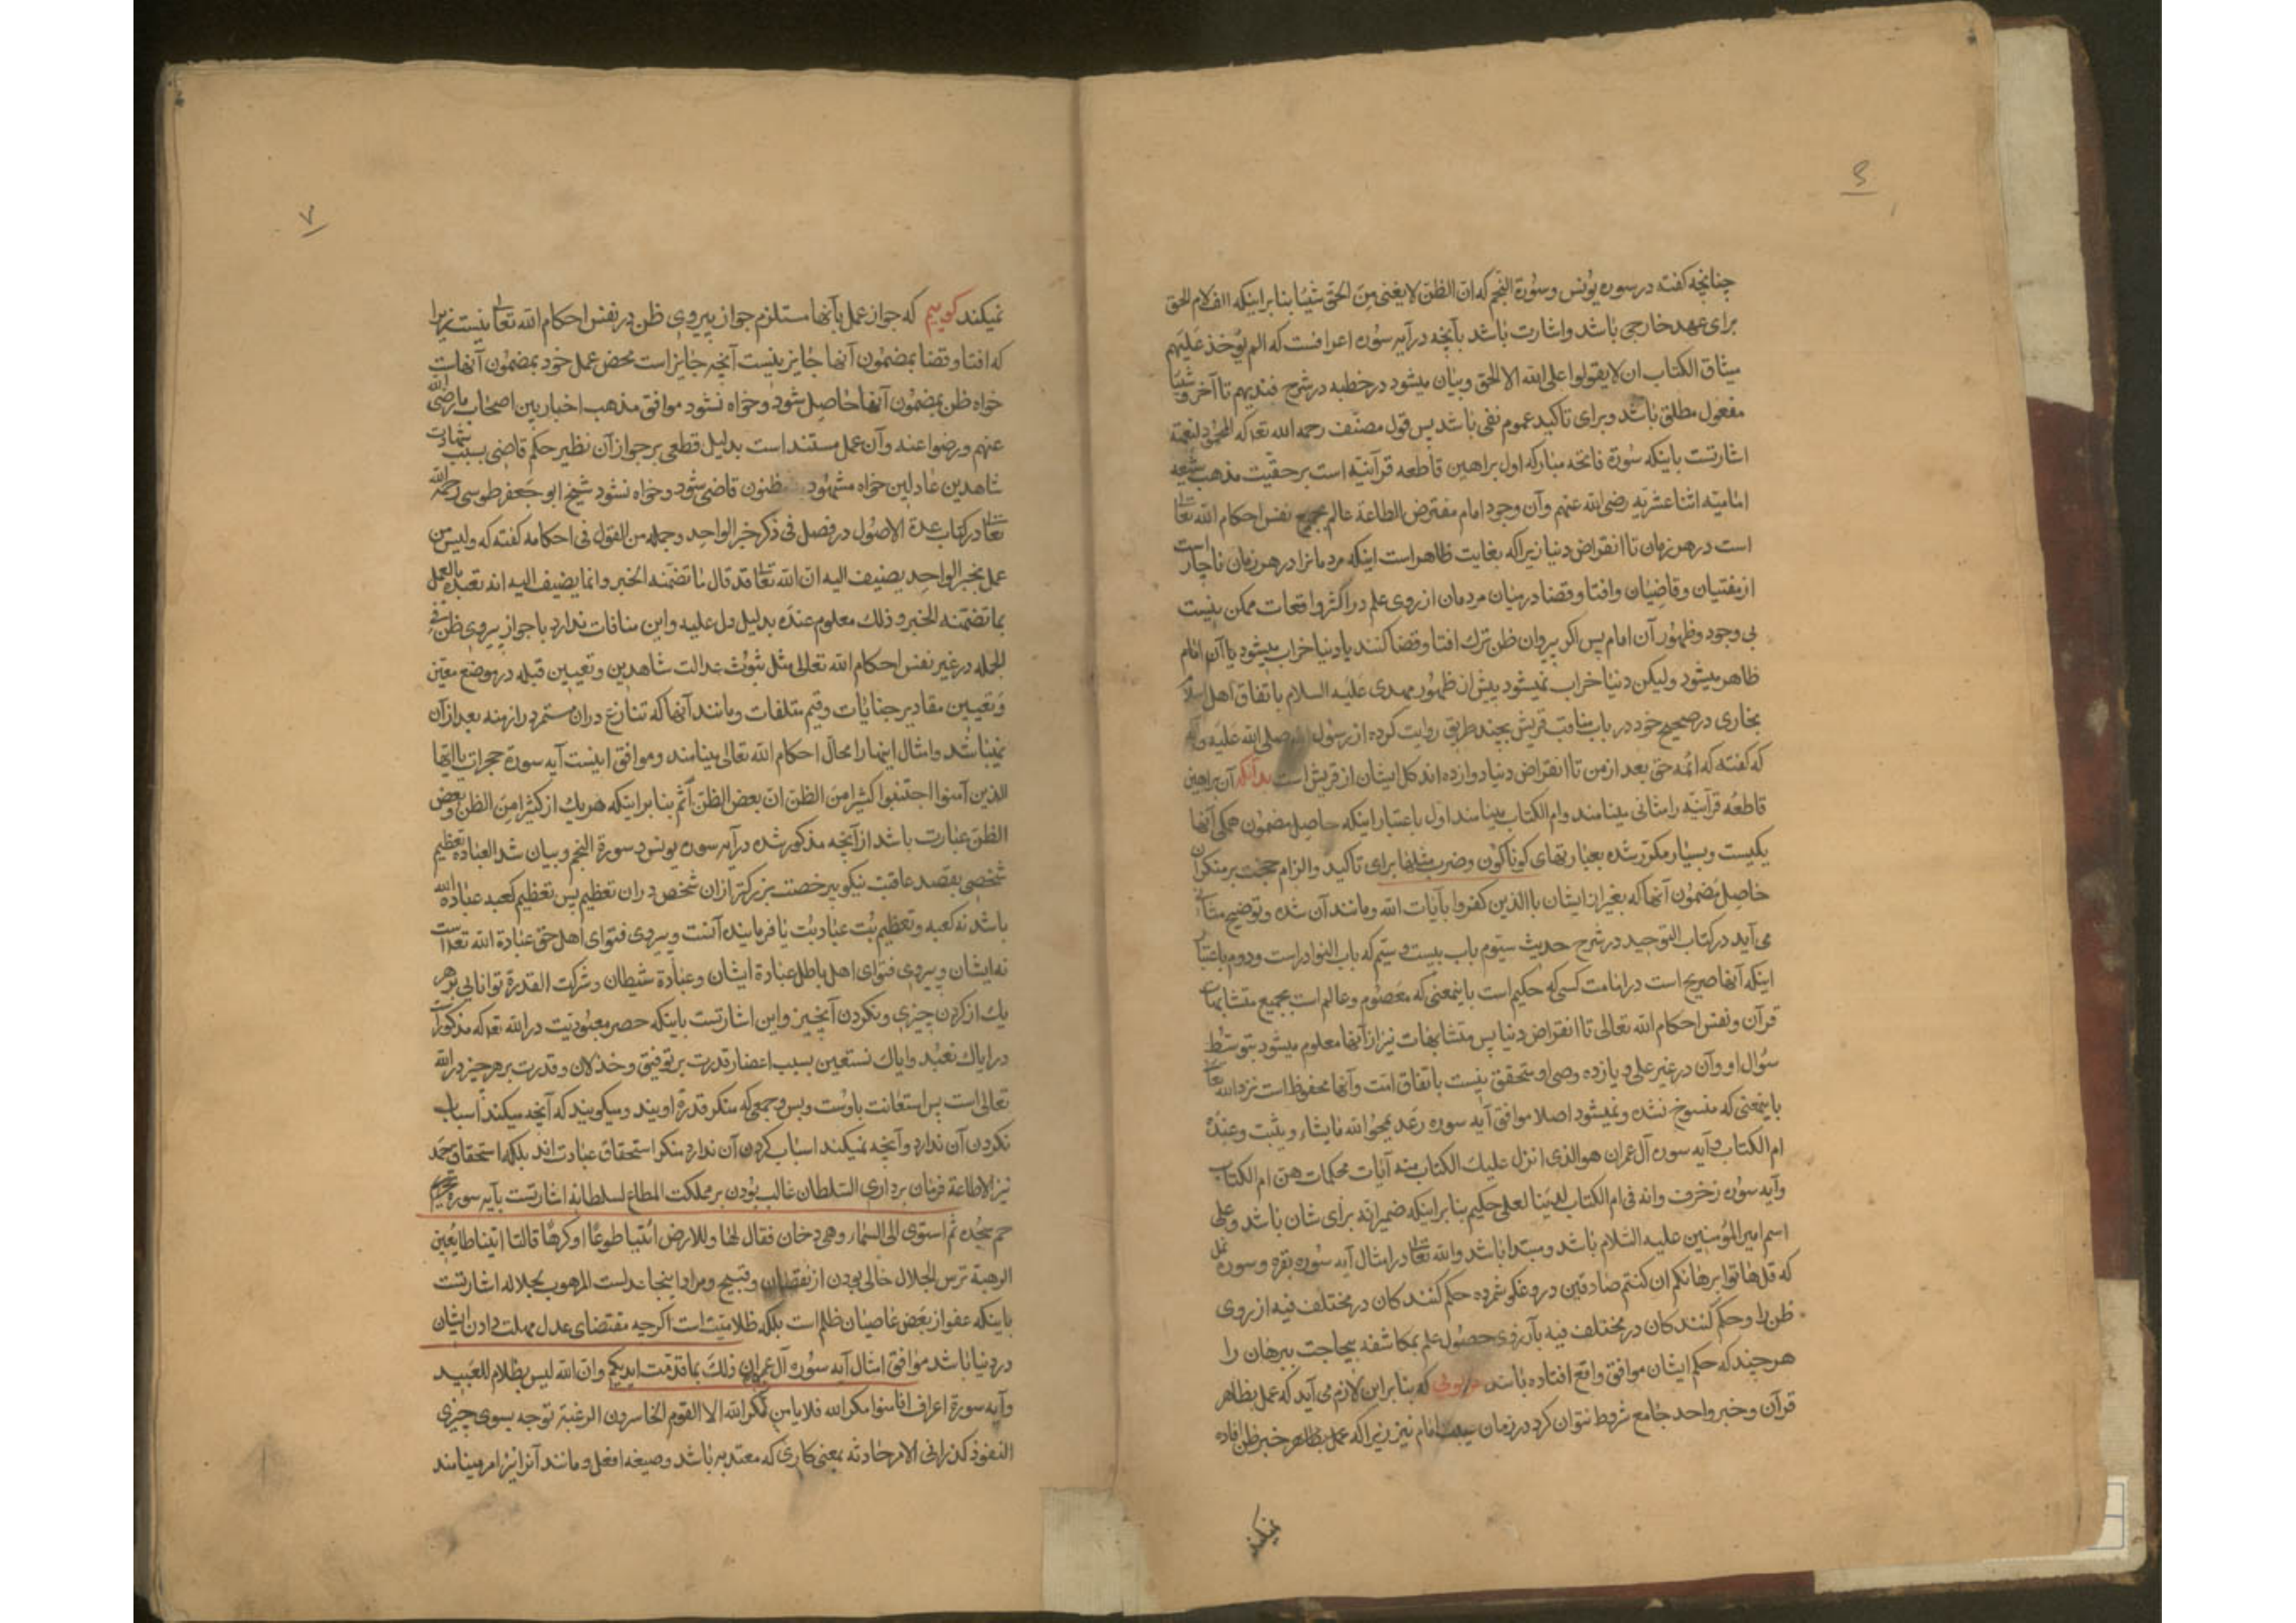 ۶
چنانچه گفته در سوره یونس و سورة النجم که ان الظن لا یغنی من الحق شیئا بنا بر اینکه الف لام الحق
برای عهد خارجی باشد و اشارت باشد بآنچه در آیه سوره اعرافست که الم یؤخذ علیهم
میثاق الکتاب ان لا یقولوا علی الله الا الحق و بیان میشود در خطبه در شرح فندبهم تا آخر و شیئا
مفعول مطلق باشد و برای تاکید عموم نفی باشد پس قول مصنف رحمه الله تعه که المحمود لنعمته
اشارتست باینکه سورة فاتحه مبارکه اول براهین قاطعه قرآنیه است بر حقیت مذهب شیعه
امامیه اثنا عشریه رضی الله عنهم و آن وجود امام مفترض الطاعة عالم بجمیع نفس احکام الله تعالی
است در هر زمان تا انقراض دنیا زیرا که بغایت ظاهر است اینکه مردمانرا در هر زمان ناچار است
از مفتیان و قاضیان و افتا و قضا در میان مردمان از روی علم در اکثر واقعات ممکن نیست
بی وجود و ظهور آن امام پس اگر پیروان ظن ترك افتا و قضا کنند یا دنیا خراب میشود یا آن امام
ظاهر میشود ولیکن دنیا خراب نمیشود پیش از ظهور مهدی علیه السلام باتفاق اهل اسلام
بخاری در صحیح خود در باب مناقب قریش بچند طریق روایت کرده از رسول الله صلی الله علیه و آله
که گفته که ائمه حق بعد از من تا انقراض دنیا دوازده اند کل ایشان از قریش است بدانکه آن براهین
قاطعه قرآنیه را مثانی مینامند و ام الکتاب مینامند اول باعتبار اینکه حاصل مضمون همگی آنها
یکیست و بسیار مکرر شده بعبارتهای کوناکون و ضرب مثلها برای تاکید و الزام حجت بر منکران
حاصل مضمون آنها که بغیر از ایشان با الذین کفروا بآیات الله و مانند آن شده و توضیح مثانی
می آید در کتاب التوحید در شرح حدیث سیوم باب بیست و سیم که باب النوادر است و دوم باعتبار
اینکه آنها صریح است در امامت کسی که حکیم است باینمعنی که معصوم و عالم است بجمیع متشابهات
قرآن و نفس احکام الله تعالی تا انقراض دنیا پس متشابهات نیز از آنها معلوم میشود بتوسط
سؤال او و آن در غیر علی و یازده وصی او متحقق نیست باتفاق امت و آنها محفوظ است نزد الله تعالی
باینمعنی که منسوخ نشده و نمیشود اصلا موافق آیه سوره رعد یمحوا الله ما یشاء و یثبت و عنده
ام الکتاب و آیه سوره آل عمران هو الذی انزل علیك الکتاب منه آیات محکمات هن ام الکتاب
و آیه سوره زخرف و انه فی ام الکتاب لدینا لعلی حکیم بنا بر اینکه ضمیر انه برای شان باشد و علی
اسم امیر المؤمنین علیه السلام باشد و مبتدا باشد و الله تعالی در امثال آیه سوره بقره و سوره نمل
که قل هاتوا برهانکم ان کنتم صادقین دروغکو شمرده حکم کنندکان در مختلف فیه از روی
ظن را و حکم کنندکان در مختلف فیه بآرزوی حصول علم بمکاشفه بیحاجت ببرهان را
هرچند که حکم ایشان موافق واقع افتاده باشد که بنا بر این لازم می آید که عمل بظاهر
قرآن و خبر واحد جامع شروط نتوان کرد در زمان امام نیز زیرا که عمل بظاهر خبر ظن افاده
نمیکند
۷
نمیکند کوییم که جواز عمل بآنها مستلزم جواز پیروی ظن در نفس احکام الله تعالی نیست زیرا
که افتا و قضا بمضمون آنها جایز نیست آنچه جایز است محض عمل خود بمضمون آنهاست
خواه ظن بمضمون آنها حاصل شود و خواه نشود موافق مذهب اخباریین اصحاب ما رضی الله
عنهم و رضوا عنه و آن عمل مستند است بدلیل قطعی بر جواز آن نظیر حکم قاضی بسبب شهادت
شاهدین عادلین خواه مشهود مظنون قاضی شود و خواه نشود شیخ ابو جعفر طوسی رحمه الله
تعالی در کتاب عدة الاصول در فصل فی ذکر خبر الواحد و جمله من القول فی احکامه گفته که و لیس من
عمل بخبر الواحد یضیف الیه ان الله تعالی قد قال ما تضمنه الخبر و انما یضیف الیه انه تعبده بالعمل
بما تضمنه الخبر و ذلك معلوم عنده بدلیل دل علیه و این منافات ندارد با جواز پیروی ظن فی
الجمله در غیر نفس احکام الله تعالی مثل ثبوت عدالت شاهدین و تعیین قبله در موضع معین
و تعیین مقادیر جنایات و قیم متلفات و مانند آنها که تنازع در ان مستمر در ازمنه بعد از آن
نمیباشد و امثال اینها را محال احکام الله تعالی مینامند و موافق اینست آیه سورة حجرات یا ایها
الذین آمنوا اجتنبوا کثیرا من الظن ان بعض الظن اثم بنا بر اینکه هر یك از کثیرا من الظن و بعض
الظن عبارت باشد از آنچه مذکور شده در آیه سوره یونس و سورة النجم و بیان شد العبادة تعظیم
شخصی بقصد عاقبت نیکو بی رخصت بزرگتر از ان شخص در ان تعظیم پس تعظیم کعبه عبادة الله
باشد نه کعبه و تعظیم بت عبادت بت یا فرماینده آنست و پیروی فتوای اهل حق عبادة الله تعه است
نه ایشان و پیروی فتوای اهل باطل عبادة ایشان و عبادة شیطان و شرکت القدرة توانایی بر هر
یك از کردن چیزی و نکردن آنچیز و این اشارتست باینکه حصر معبودیت در الله تعه که مذکور است
در ایاك نعبد و ایاك نستعین بسبب انحصار قدرت بر توفیق و خذلان و قدرت بر هر چیز در الله
تعالی است پس استعانت باوست و بس و جمعی که منکر قدرة اویند و میگویند که آنچه میکند اسباب
نکردن آن ندارد و آنچه نمیکند اسباب کردن آن ندارد منکر استحقاق عبادت اند بلکه استحقاق حمد
نیز الاطاعة فرمان برداری السلطان غالب بودن بر مملکت المطاع لسلطانه اشارتست بآیه سوره
حم سجده ثم استوی الی السماء و هی دخان فقال لها و للارض ائتیا طوعا او کرها قالتا اتینا طایعین
الرهبة ترس الجلال خالی بودن از نقصان و قبیح و مراد اینجا عدلست المرهوب لجلاله اشارتست
باینکه عفو از بعض عاصیان ظلم است بلکه ظلامیت است اگرچه مقتضای عدل مهلت دادن ایشان
در دنیا باشد موافق امثال آیه سوره آل عمران ذلك بما قدمت ایدیکم و ان الله لیس بظلام للعبید
و آیه سورة اعراف افامنوا مکر الله فلا یامن مکر الله الا القوم الخاسرون الرغبة توجه بسوی چیزی
النفوذ کذرانی الامر حادثه بمعنی کاری که معتد به باشد و صیغه افعل و مانند آنرا نیز امر مینامند